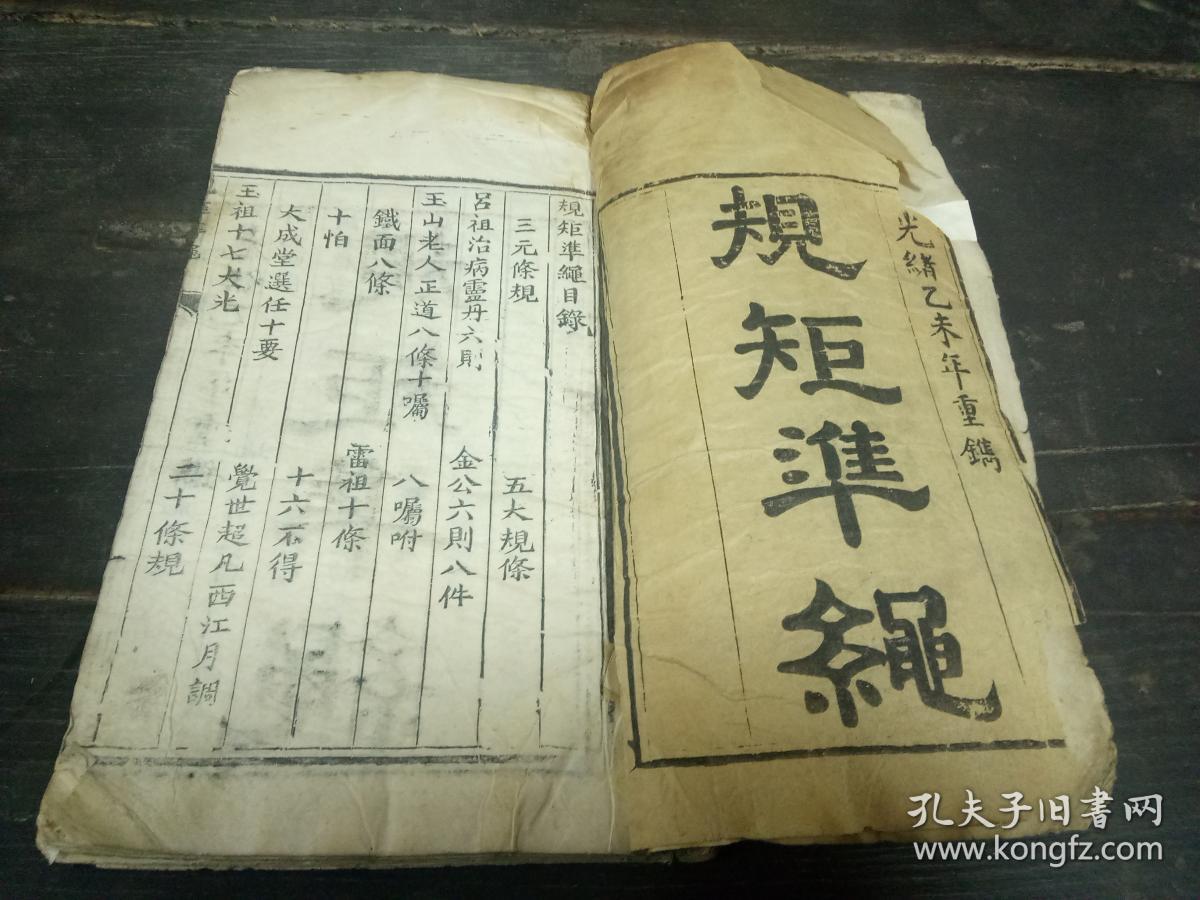 光緒乙未年重鐫
規矩準繩
規矩準繩目錄
三元條規 五大規條
呂祖治病靈丹六則 金公六則八件
玉山老人正道八條十囑 八囑咐
鐵面八條 雷祖十條
十怕 十六不得
大成堂選任十要 覺世超凡西江月調
王祖十七大光 二十條規
孔夫子旧书网
www.kongfz.com